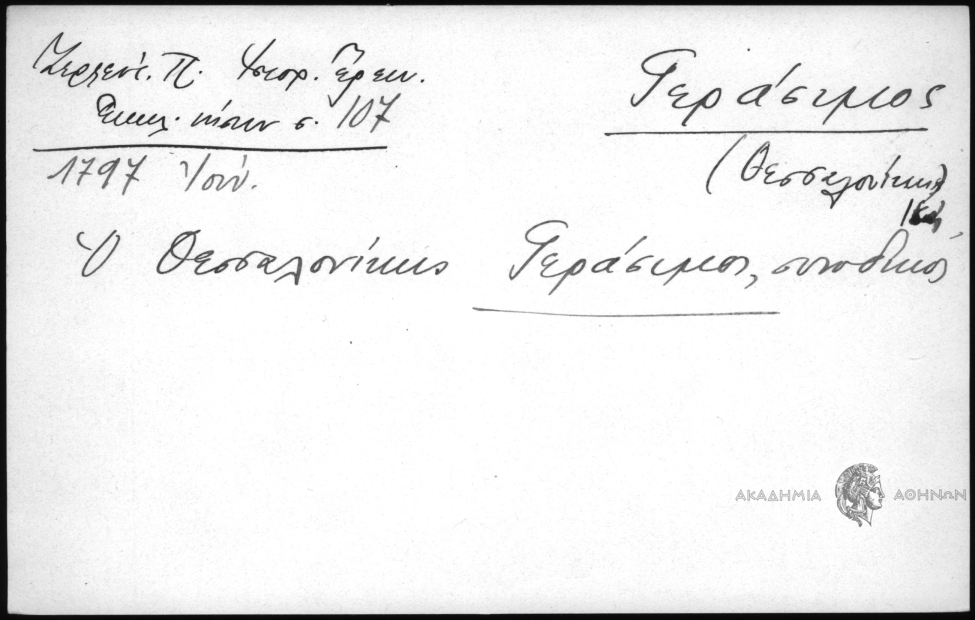 Ζερλέντ. Π. Ἱστορ. Ἔρευν.
Ἐκκλ. νήσων σ. 107
1797 Ἰούν.
Γεράσιμος
(Θεσσαλονίκης)
Ὁ Θεσσαλονίκης Γεράσιμος, συνοδικὸς
ΑΚΑΔΗΜΙΑ ΑΘΗΝΩΝ